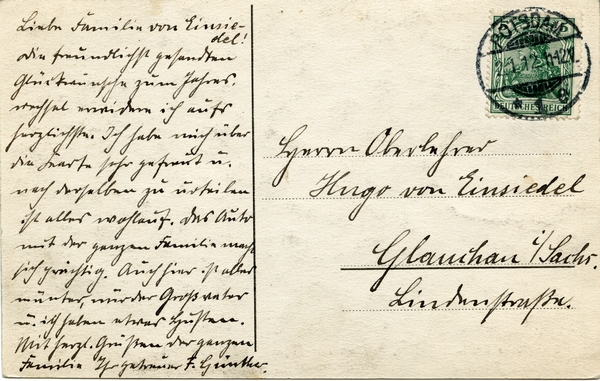 Liebe Familie von Einsie-
del!
Die freundlichst gesandten
Glückwünsche zum Jahres-
wechsel erwidere ich aufs
herzlichste. Ich habe mich über
die Karte sehr gefreut u.
nach derselben zu urteilen
ist alles wohlauf. Das Auto
mit der ganzen Familie macht
sich prächtig. Auch hier ist alles
munter, nur der Großvater
u. ich haben etwas Husten.
Mit herzl. Grüßen der ganzen
Familie Ihr getreuer F. Günther.
POTSDAM
DEUTSCHES REICH
Herrn Oberlehrer
Hugo von Einsiedel
Glauchau i/Sachs.
Lindenstraße.